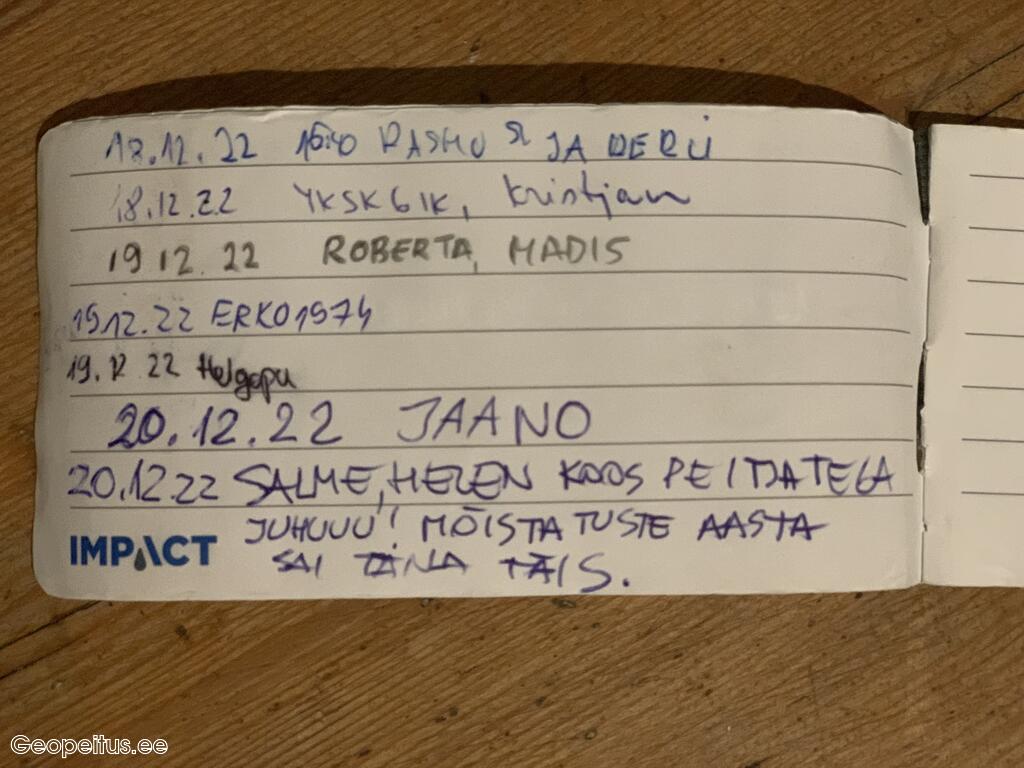 18.12.22 16:40 RASMUS JA RERÜ
18.12.22 YKSKÕIK, Kristjan
19 12. 22 ROBERTA, MADIS
19.12.22 ERKO1974
19.12 22 Helgapu
20.12.22 JAANO
20.12.22 SALME, HELEN KOOS PEITJATEGA
JUHUUU! MÕISTATUSTE AASTA
SAI TÄNA TÄIS.
IMPACT
Geopeitus.ee